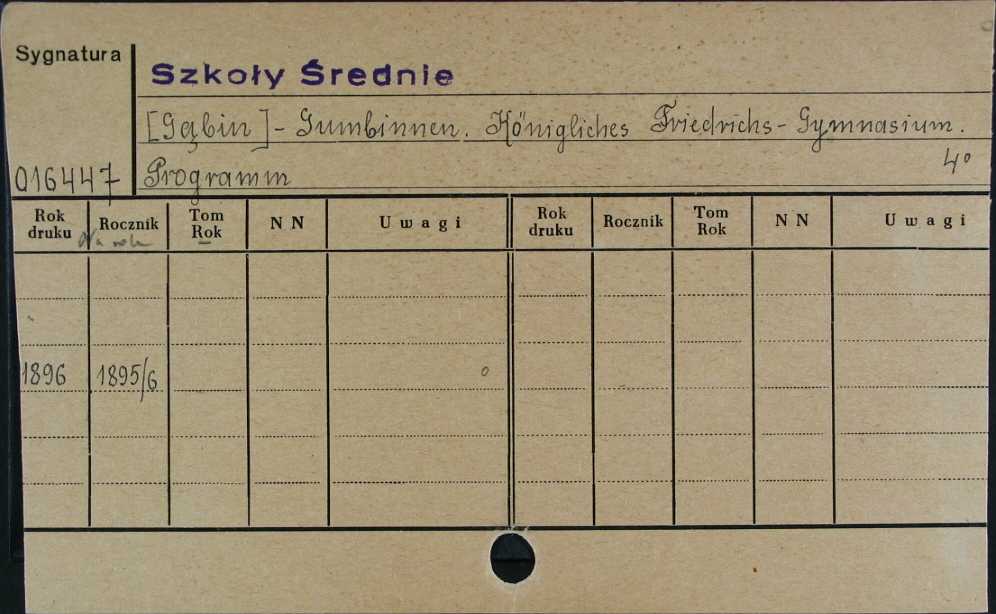 Sygnatura
Szkoły Średnie
[Gąbin] - Gumbinnen. Königliches Friedrichs - Gymnasium.
4°
016447 Programm
Rok druku Rocznik Tom Rok NN Uwagi Rok druku Rocznik Tom Rok NN Uwagi
Na rok
1896 1895/6